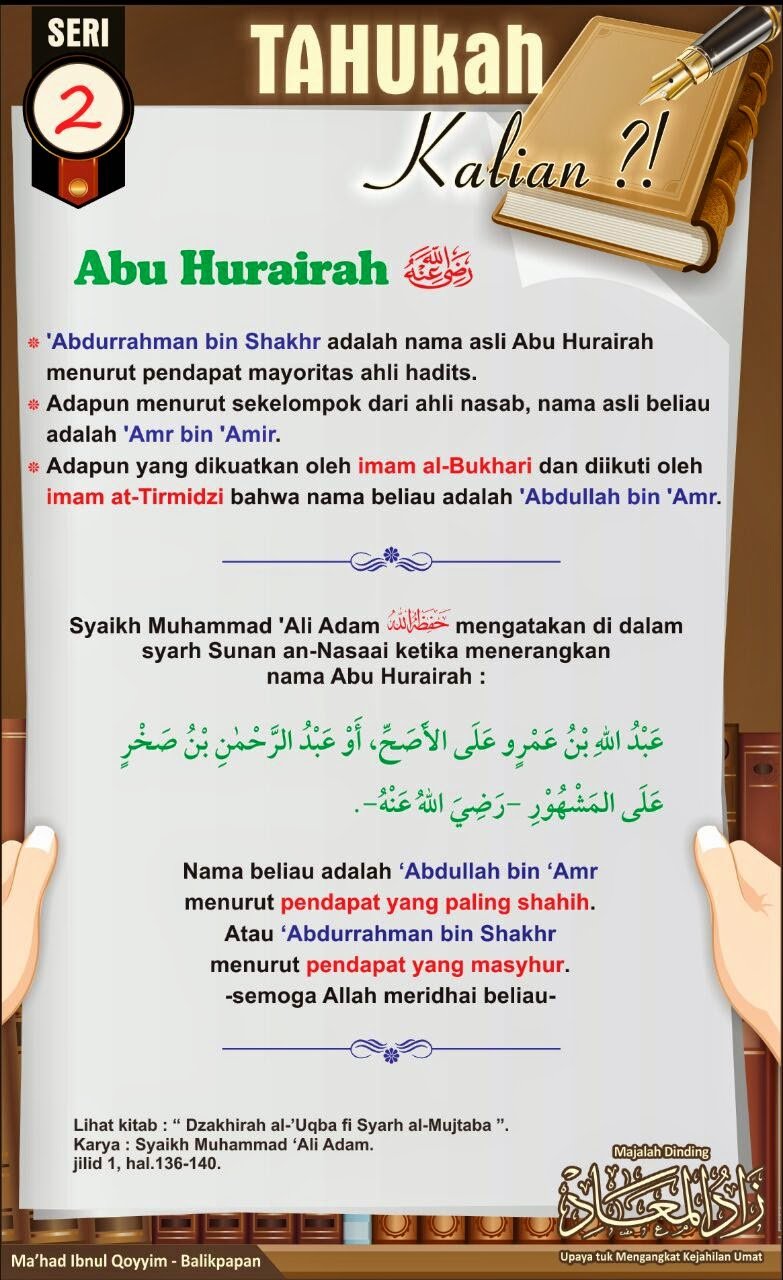 SERI
2
TAHUkah
Kalian ?!
Abu Hurairah رضي الله عنه
'Abdurrahman bin Shakhr adalah nama asli Abu Hurairah
menurut pendapat mayoritas ahli hadits.
Adapun menurut sekelompok dari ahli nasab, nama asli beliau
adalah 'Amr bin 'Amir.
Adapun yang dikuatkan oleh imam al-Bukhari dan diikuti oleh
imam at-Tirmidzi bahwa nama beliau adalah 'Abdullah bin 'Amr.
Syaikh Muhammad 'Ali Adam حفظه الله mengatakan di dalam
syarh Sunan an-Nasaai ketika menerangkan
nama Abu Hurairah :
عَبْدُ اللهِ بْنُ عَمْرٍو عَلَى الأَصَحِّ، أَوْ عَبْدُ الرَّحْمٰنِ بْنُ صَخْرٍ
عَلَى المَشْهُوْرِ –رَضِيَ اللهُ عَنْهُ–.
Nama beliau adalah ‘Abdullah bin ‘Amr
menurut pendapat yang paling shahih.
Atau ‘Abdurrahman bin Shakhr
menurut pendapat yang masyhur.
-semoga Allah meridhai beliau-
Lihat kitab : “ Dzakhirah al-’Uqba fi Syarh al-Mujtaba ”.
Karya : Syaikh Muhammad ‘Ali Adam.
jilid 1, hal.136-140.
Majalah Dinding
زَادُ المَعَاد
Upaya tuk Mengangkat Kejahilan Umat
Ma’had Ibnul Qoyyim - Balikpapan